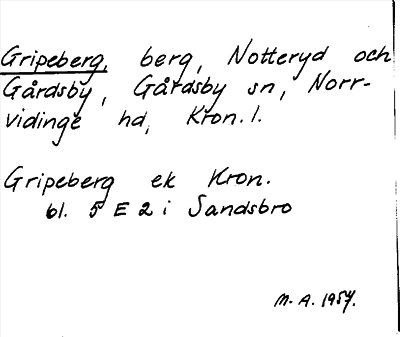 Gripeberg, berg, Notteryd och
Gårdsby, Gårdsby sn, Norr-
vidinge hd, Kron. l.
Gripeberg ek Kron.
bl. 5 E 2 i Sandsbro
M. A. 1957.